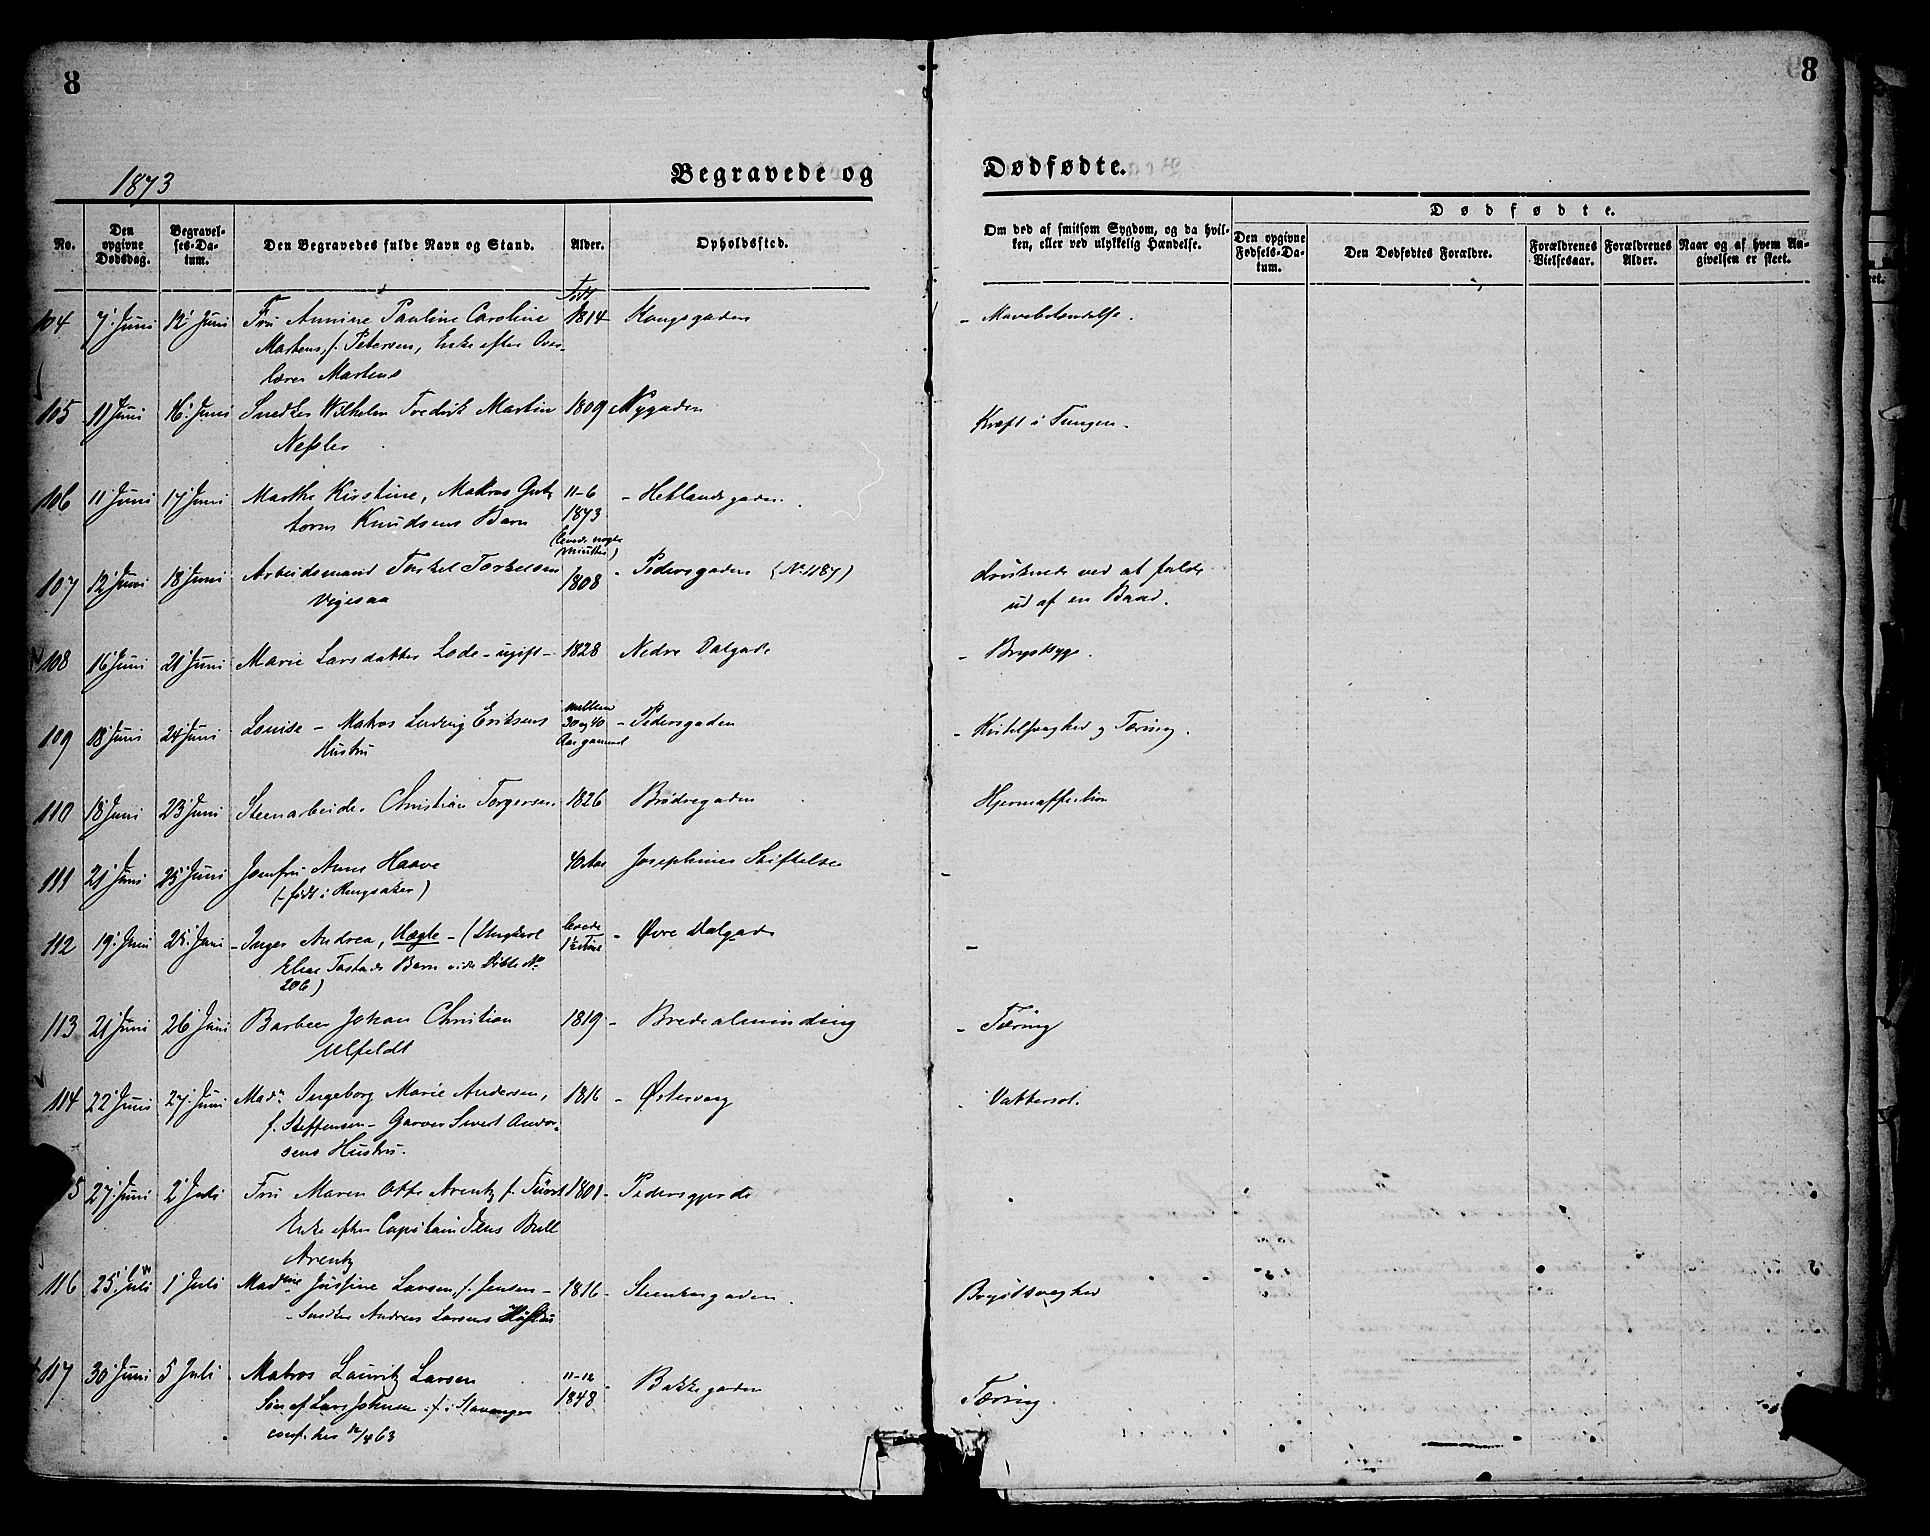 8
8
1873
Begravede og
Dødfødte.
No.
Den opgivne Dødsdag.
Begravel-ses-Da-tum.
Den Begravedes fulde Navn og Stand.
Alder.
Opholdssted.
Om død af smitsom Sygdom, og da hvil-
ken, eller ved ulykkelig Hændelse.
Dødfødte.
Den opgivne Fødsels-Da-tum.
Den Dødfødtes Forældre.
Forældrenes Vielsesaar.
Forældrenes Alder.
Naar og af hvem An-givelsen er skeet.
født
104 7' Juni 12' Juni Fru Annine Pauline Caroline 1814 Kongsgaden - Mavebetændelse.
Martens, f. Petersen, Enke efter Over-
lærer Martens
105 11 Juni 16' Juni Snedker Wilhelm Fredrik Martin 1809 Nygaden Kræft i Tungen.
Nessler
106 11 Juni 17 Juni Marthe Kirstine, Matros Gut- 11-6 - Hetlandsgaden.
torm Knudsens Barn 1873
(levede nogle
Minutter)
107 12' Juni 18' Juni Arbeidsmand Torkel Torkelsen 1808 - Pedersgaden (No 1187) druknede ved at falde
Vigesaa ud af en Baad.
108 16' Juni 21' Juni Marie Larsdatter Lode - ugift - 1828 Nedre Dalgade - Brystsyge.
109 18' Juni 24 Juni Louise - Matros Ludvig Eriksens mellem - Pedersgaden - Kirtelsvaghed og Tæring.
Hustru 30 og 40
Aar gammel
110 18' Juni 23' Juni Steenarbeider Christian Torgersen 1826 Brødregaden Hjerteaffection
111 21' Juni 25' Juni Jomfru Anne Haave 40 Aar Josephines Stiftelse -
(- født i Ringsaker)
112 19' Juni 25' Juni - Inger Andrea, Uægte - ( levede - Øvre Dalgade -
Elias Tastads Barn vide Døbte No 1½ Time
206)
113 21' Juni 26' Juni Barbeer Johan Christian 1819 - Bredealminding - Tæring
Ulfeldt
114 22' Juni 27' Juni Madm Ingeborg Marie Andersen, 1816 - Østervaag - Vattersot.
f. Steffensen - Garver Sivert Ander-
sens Hustru.
5 27' Juni 2' Juli Fru Maren Otte Arentz f. Fürst 1801 - Pedersgjerde
Enke efter Capitain Jens Bull
Arentz
116 25' Juli 1' Juli Madme Justine Larsen, f. Jensen - 1816 - Steenkargaden. Brystsvaghed
- Snedker Andreas Larsens Hustru
117 30' Juni 5 Juli Matros Lauritz Larsen 11-12 - Bakkegaden Tæring.
Søn af Lars Johnsen - f. i Stavanger 1848
conf. her 12/4 63